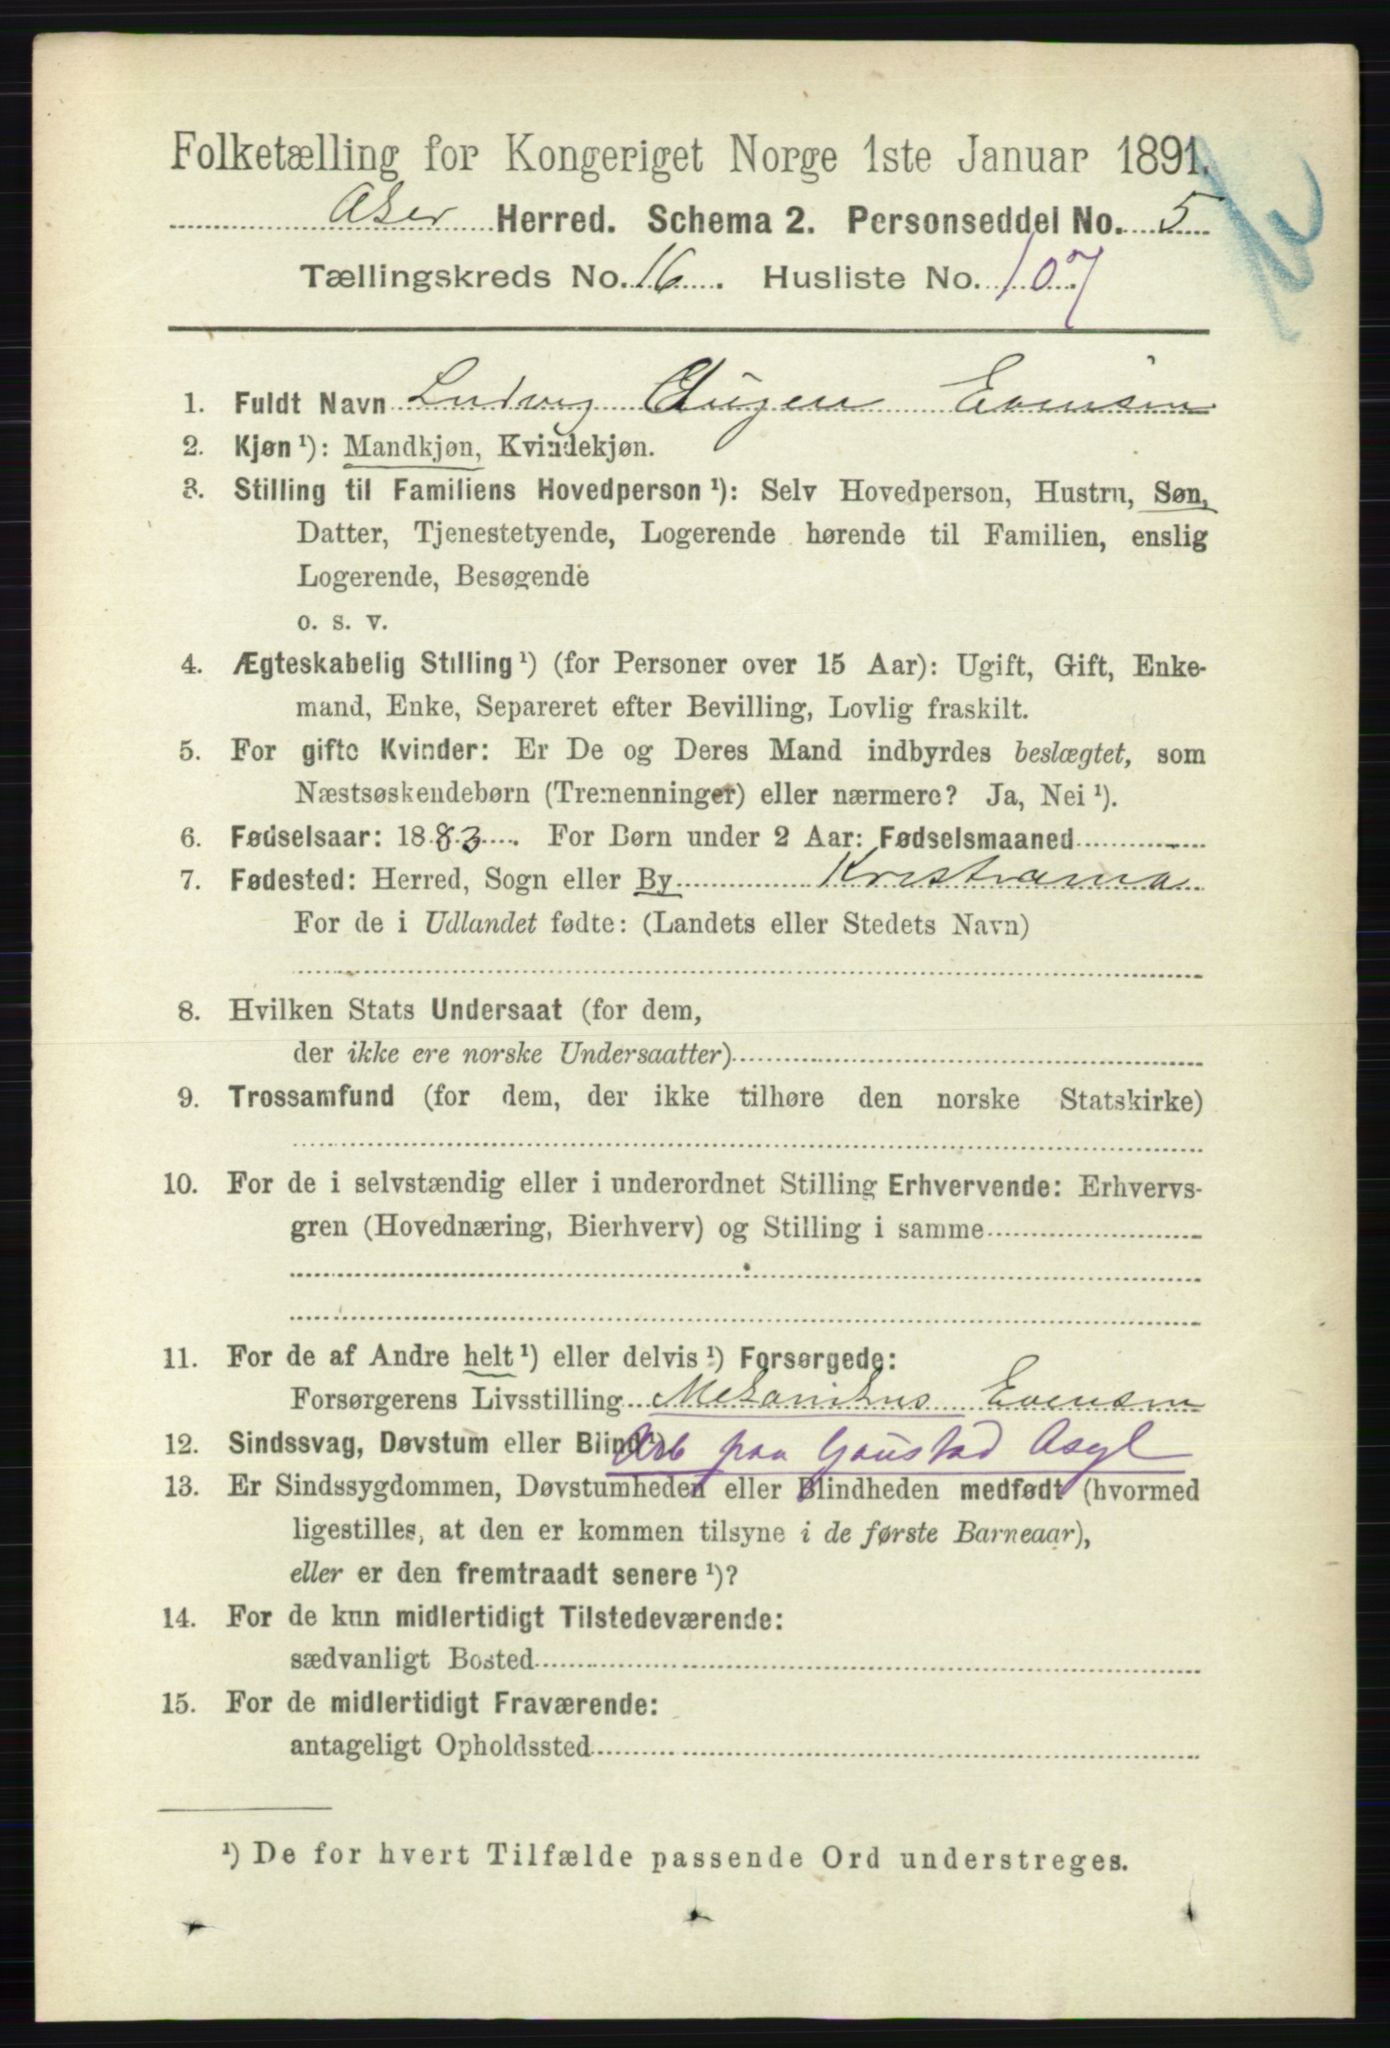 Folketælling for Kongeriget Norge 1ste Januar 1891.
Aker Herred. Schema 2. Personseddel No. 5
Tællingskreds No. 16. Husliste No. 107
1. Fuldt Navn Ludvig Eugen Evensen
2. Kjøn ¹): Mandkjøn, Kvindekjøn.
3. Stilling til Familiens Hovedperson ¹): Selv Hovedperson, Hustru, Søn,
Datter, Tjenestetyende, Logerende hørende til Familien, enslig
Logerende, Besøgende
o. s. v.
4. Ægteskabelig Stilling ¹) (for Personer over 15 Aar): Ugift, Gift, Enke-
mand, Enke, Separeret efter Bevilling, Lovlig fraskilt.
5. For gifte Kvinder: Er De og Deres Mand indbyrdes beslægtet, som
Næstsøskendebørn (Tremenninger) eller nærmere? Ja, Nei ¹).
6. Fødselsaar: 1883. For Børn under 2 Aar: Fødselsmaaned
7. Fødested: Herred, Sogn eller By Kristiania
For de i Udlandet fødte: (Landets eller Stedets Navn)
8. Hvilken Stats Undersaat (for dem,
der ikke ere norske Undersaatter)
9. Trossamfund (for dem, der ikke tilhøre den norske Statskirke)
10. For de i selvstændig eller i underordnet Stilling Erhvervende: Erhvervs-
gren (Hovednæring, Bierhverv) og Stilling i samme
11. For de af Andre helt ¹) eller delvis ¹) Forsørgede:
Forsørgerens Livsstilling Mekanikus Evensen
12. Sindssvag, Døvstum eller Blind ¹) Arb paa Gaustad Asyl
13. Er Sindssygdommen, Døvstumheden eller Blindheden medfødt (hvormed
ligestilles, at den er kommen tilsyne i de første Barneaar),
eller er den fremtraadt senere ¹)?
14. For de kun midlertidigt Tilstedeværende:
sædvanligt Bosted
15. For de midlertidigt Fraværende:
antageligt Opholdssted
¹) De for hvert Tilfælde passende Ord understreges.